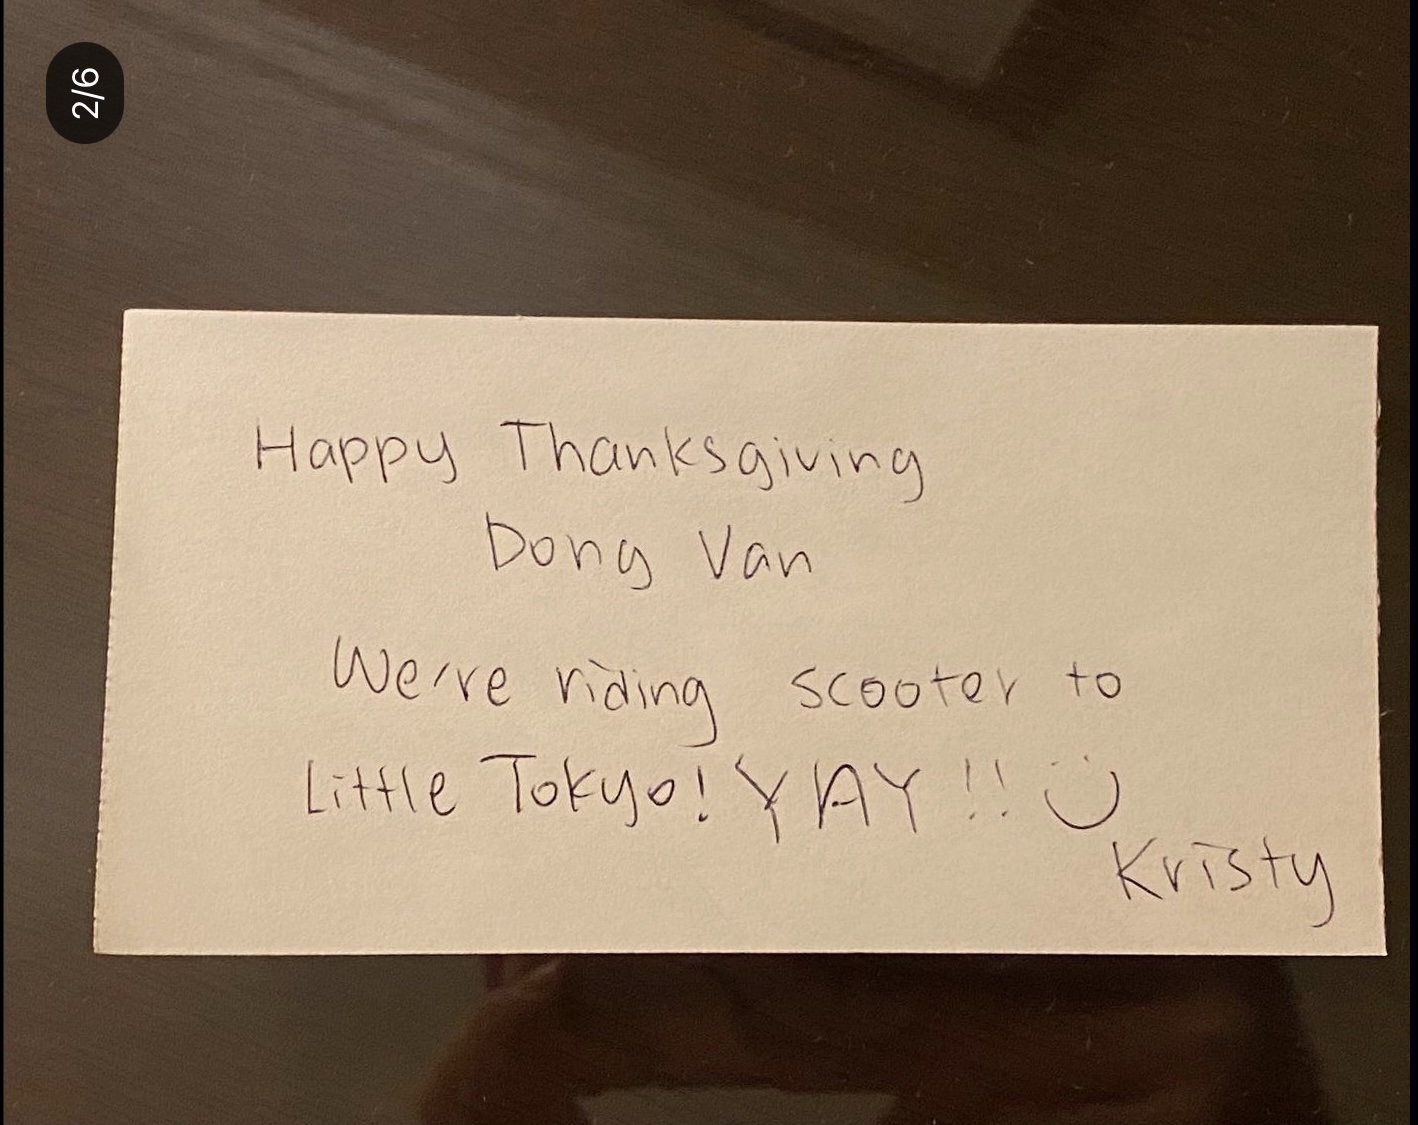 2/6
Happy Thanksgiving
Dong Van
We're riding scooter to
Little Tokyo! YAY!! :)
Kristy